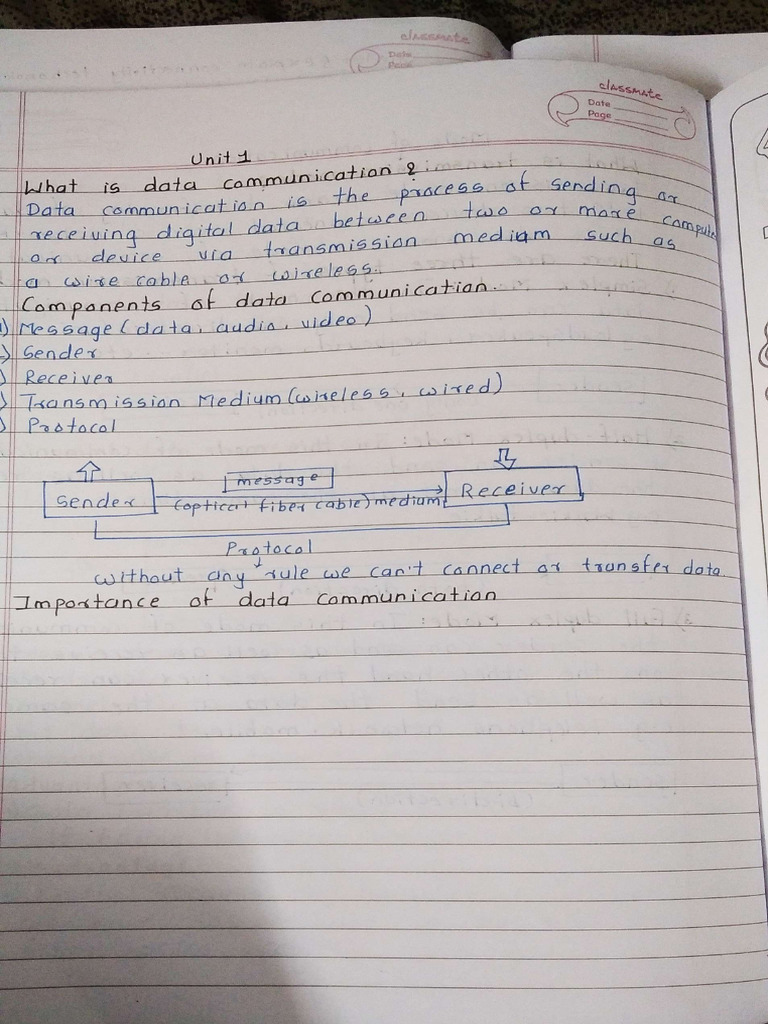 classmate
Date
Page
classmate
Date
Page
Unit 1
What is data communication ?
Data communication is the process of sending or
receiving digital data between two or more compute
or device via transmission medium such as
a wire cable, or wireless.
Components of data communication.
) Message (data, audio, video)
) Sender
) Receiver
) Transmission Medium (wireless, wired)
) Protocol
message
Sender
(optical fiber cable) medium
Receiver
Protocol
without any rule we can't connect or transfer data.
Importance of data communication